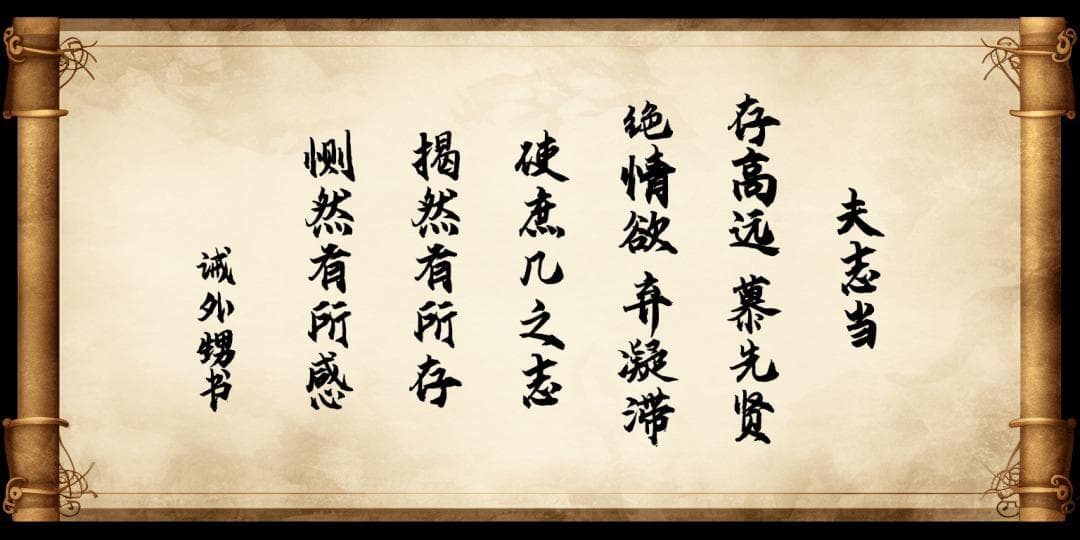 夫志当
存高远 慕先贤
绝情欲 弃凝滞
使庶几之志
揭然有所存
恻然有所感
诫外甥书